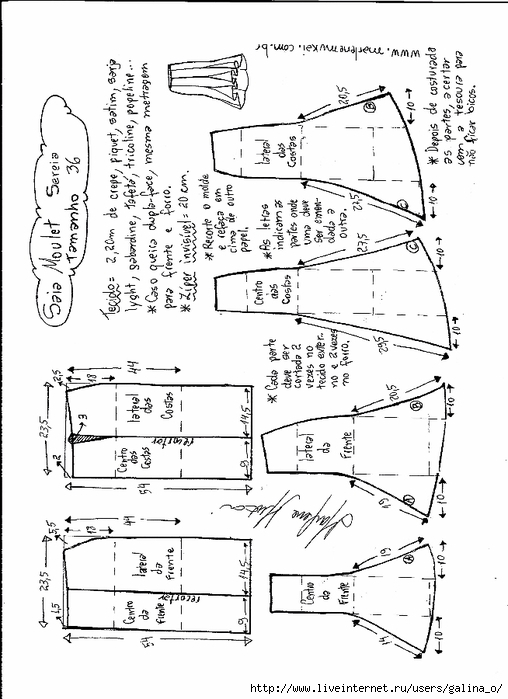 Saia Moulet Sereia
Tamanho 36
Tecido = 2,20m de crepe, piquet, satim, sarja
lyght, gabardine, tafetá, tricoline, popeline...
* Caso queira dupla-face, mesma metragem
para frente e forro.
* Ziper invisível = 20 cm.
* Recorte o molde
e refaça em
cima de outro
papel.
* As letras
indicam as
partes onde
uma deve
ser emen-
dada a
outra.
* Cada parte
deve ser
cortada 2
vezes no
tecido exter-
no e 2 vezes
no forro.
www.marlenemukai.com.br
* Depois de costurada
as partes, acertar
com a tesoura para
não ficar bicos.
23,5
2,5
2
18
44
3
Centro
das
Costas
lateral
das
Costas
recortar
54
9
14,5
23,5
5,5
1,5
18
44
Centro
da
Frente
lateral
da
Frente
recortar
54
9
14,5
lateral
das
Costas
20,5
B
27,5
C
10
10
Centro
das
Costas
27,5
C
29,5
10
10
lateral
da
Frente
20,5
B
19
A
10
10
Centro
da
Frente
19
A
14
10
10
http://www.liveinternet.ru/users/galina_o/